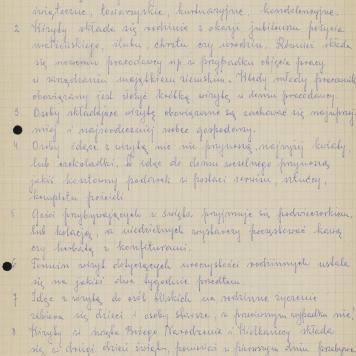 świąteczne, towarzyskie, kurtuazyjne, kondolencyjne.
2. Wizyty składa się rodzinie z okazji jubileuszu pożycia
małżeńskiego, ślubu, chrztu czy urodzin. Również składa
się nowemu pracodawcy np w przypadku objęcia pracy
w zarządzaniu majątkiem ziemskim. Wtedy młody pracownik
obowiązany jest złożyć krótką wizytę w domu pracodawcy.
3. Osoby składające wizytę obowiązane są zachować się najuprzej
miej i najserdeczniej wobec gospodarzy.
4. Osoby idące z wizytą nic nie przynoszą, najwyżej kwiaty,
lub czekoladki. W
idąc do domu weselnego przynoszą
jakiś kosztowny podarek w postaci serwisu, sztućcy,
kompletu pościeli
5. Gości przybywających w święta, przyjmuje się podwieczorkiem,
lub kolacją, w niedzielnych wystarczy poczęstować kawą
czy herbatą z konfiturami.
6. Termin wizyt dotyczących uroczystości rodzinnych ustala
się na jakieś dwa tygodnie przedtem.
7. Idąc z wizytą do osób bliskich na rodzinne życzenie
zabiera się dzieci i osoby starsze, w przeciwnym wypadku nie.
8. Wizyty w święta Bożego Narodzenia i Wielkanocy składa
się w drugi dzień świąt, ponieważ w pierwszym dniu